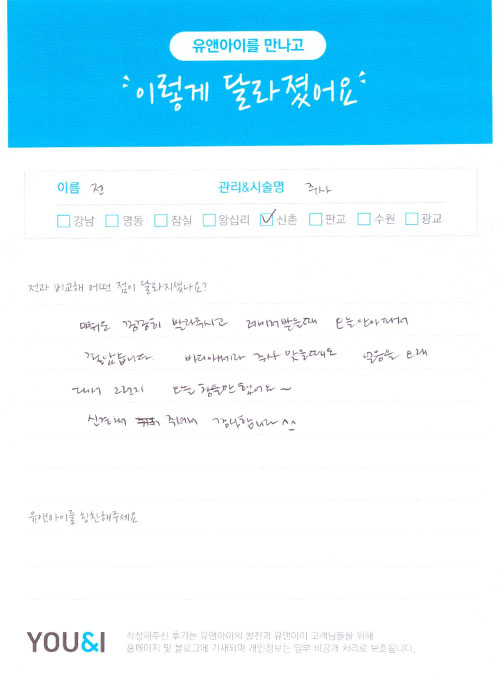 유앤아이를 만나고
이렇게 달라졌어요
이름 전 관리&시술명 주사
강남 명동 잠실 왕십리 신촌 판교 수원 광교
전과 비교해 어떤 점이 달라지셨나요?
마취도 꼼꼼히 발라주시고 레이저받을때 오늘 안아파서
좋았습니다. 주사 맞을때도 얼음을 오래
대서 그런지 오늘 참을만 했어요~
신경써서 주셔서 감사합니다 ^^
유앤아이를 칭찬해주세요
YOU&I
작성해주신 후기는 유앤아이의 발전과 유앤아이 고객님들을 위해
홈페이지 및 블로그에 기재되며 개인정보는 일부 비공개 처리로 보호됩니다.